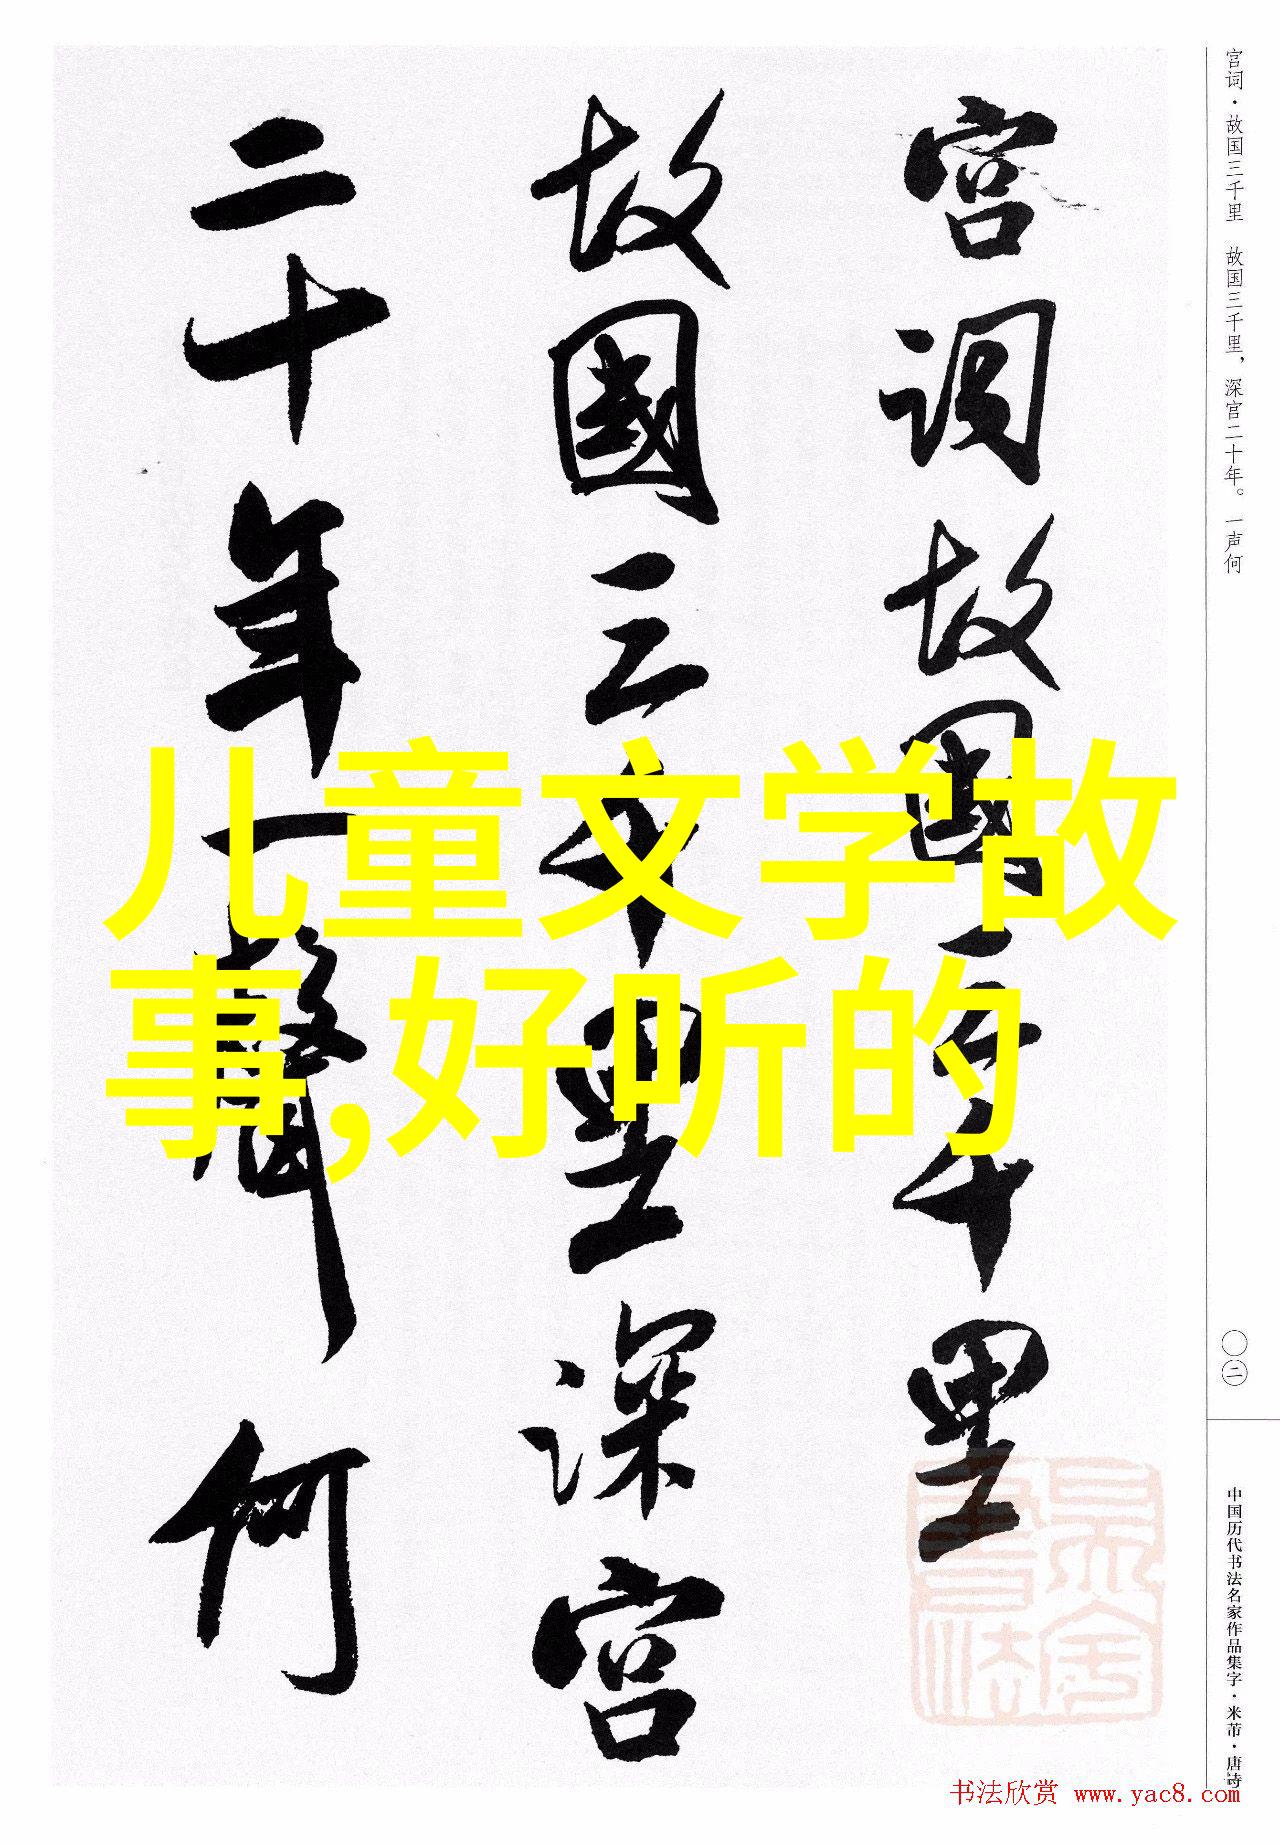 宫词故国三千里
故國三千里深宫
二十年一聲何
儿童文学故
事,好听的
宫词·故国三千里 故国三千里，深宫二十年。一声何
〇二
中国历代书法名家作品集字·米芾·唐诗
书法欣赏 www.yac8.com